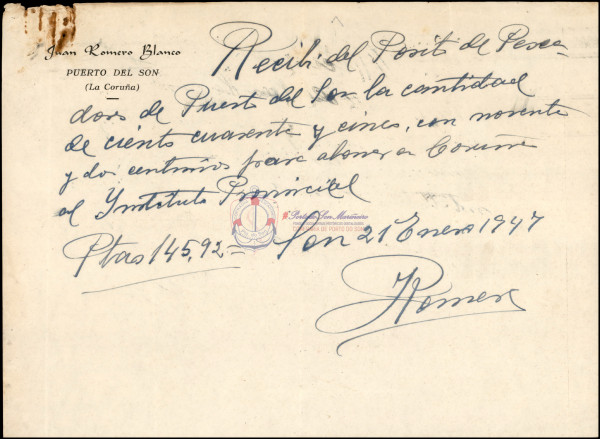 Juan Romero Blanco
PUERTO DEL SON
(La Coruña)
Recibí del Posito de Pesca-
dores de Puerto del Son la cantidad
de ciento cuarenta y cinco, con noventa
y dos centimos para abonar en Coruña
al Instituto Provincial
Ptas 145,92 Son 21 Enero 1947
Romero